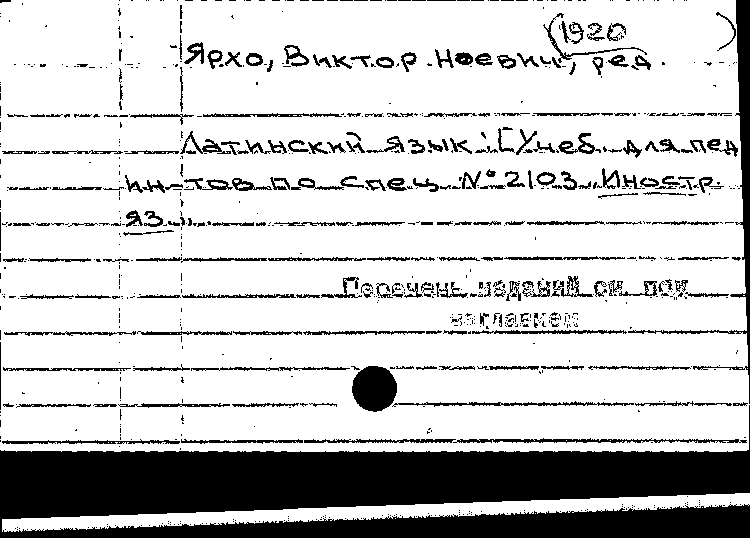 (1920 )
Ярхо, Виктор Ноевич, ред.
Латинский язык : [Учеб. для пед
ин-тов по спец. № 2103 „Иностр.
яз.“.
Перечень изданий см. под
заглавием